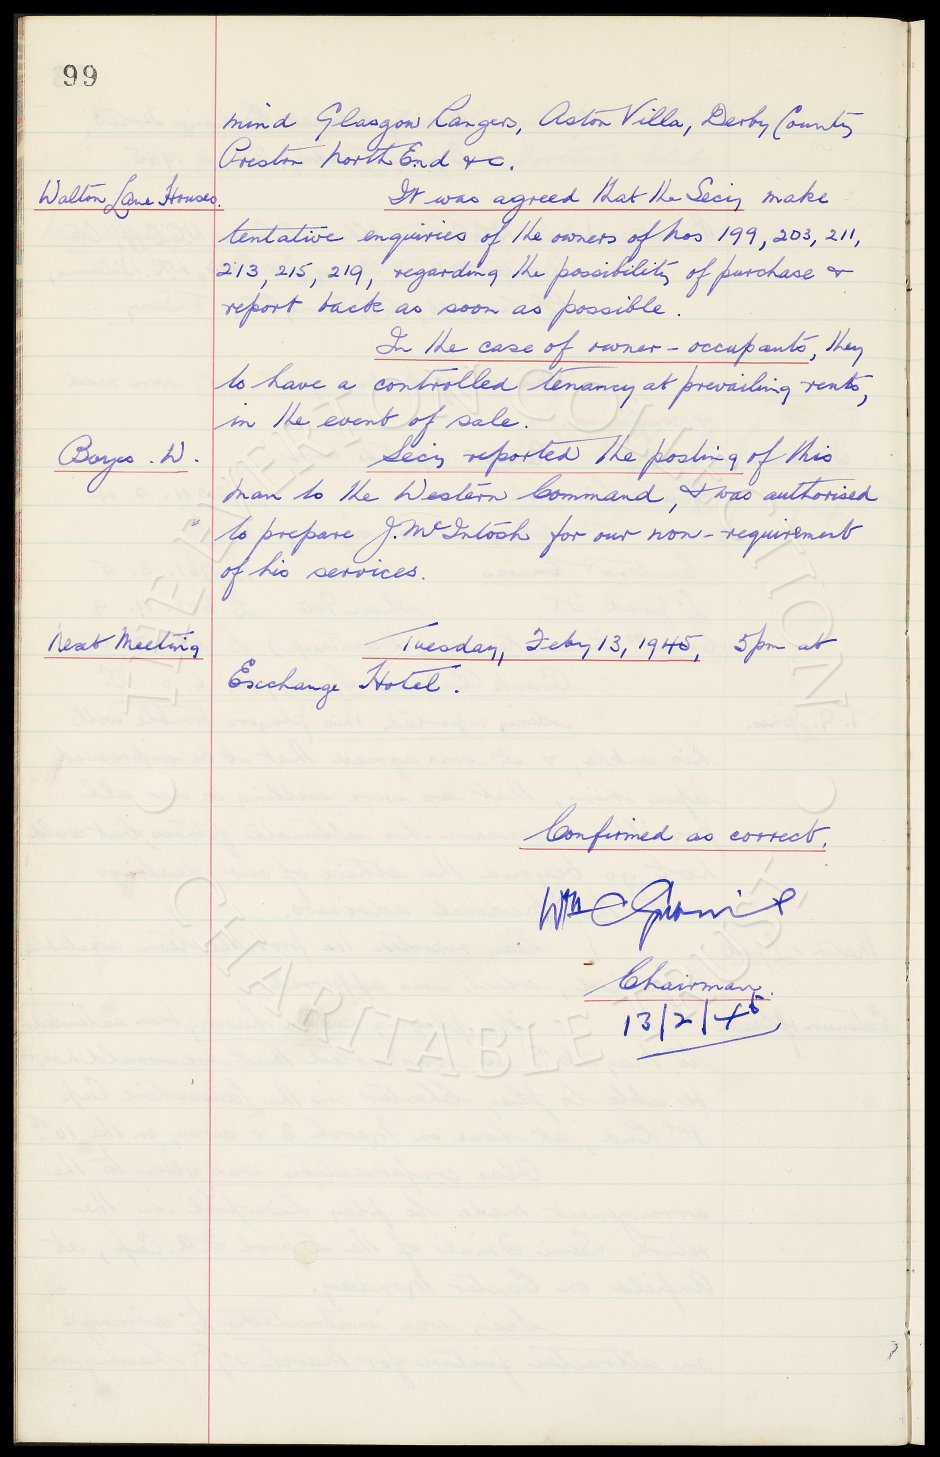 99
mind Glasgow Rangers, Aston Villa, Derby County
Preston North End &c.
Walton Lane Houses. It was agreed that the Secy make
tentative enquiries of the owners of Nos 199, 203, 211,
213, 215, 219, regarding the possibility of purchase &
report back as soon as possible.
In the case of owner-occupants, they
to have a controlled tenancy at prevailing rents,
in the event of sale.
Boyes. W. Secy reported the posting of this
man to the Western Command, & was authorised
to prepare J. McIntosh for our non-requirement
of his services.
Next Meeting Tuesday, Feby 13, 1945, 5pm at
Exchange Hotel.
Confirmed as correct.
Wm C
Chairman.
13/2/45
THE EVERTON COLLECTION
CHARITABLE TRUST